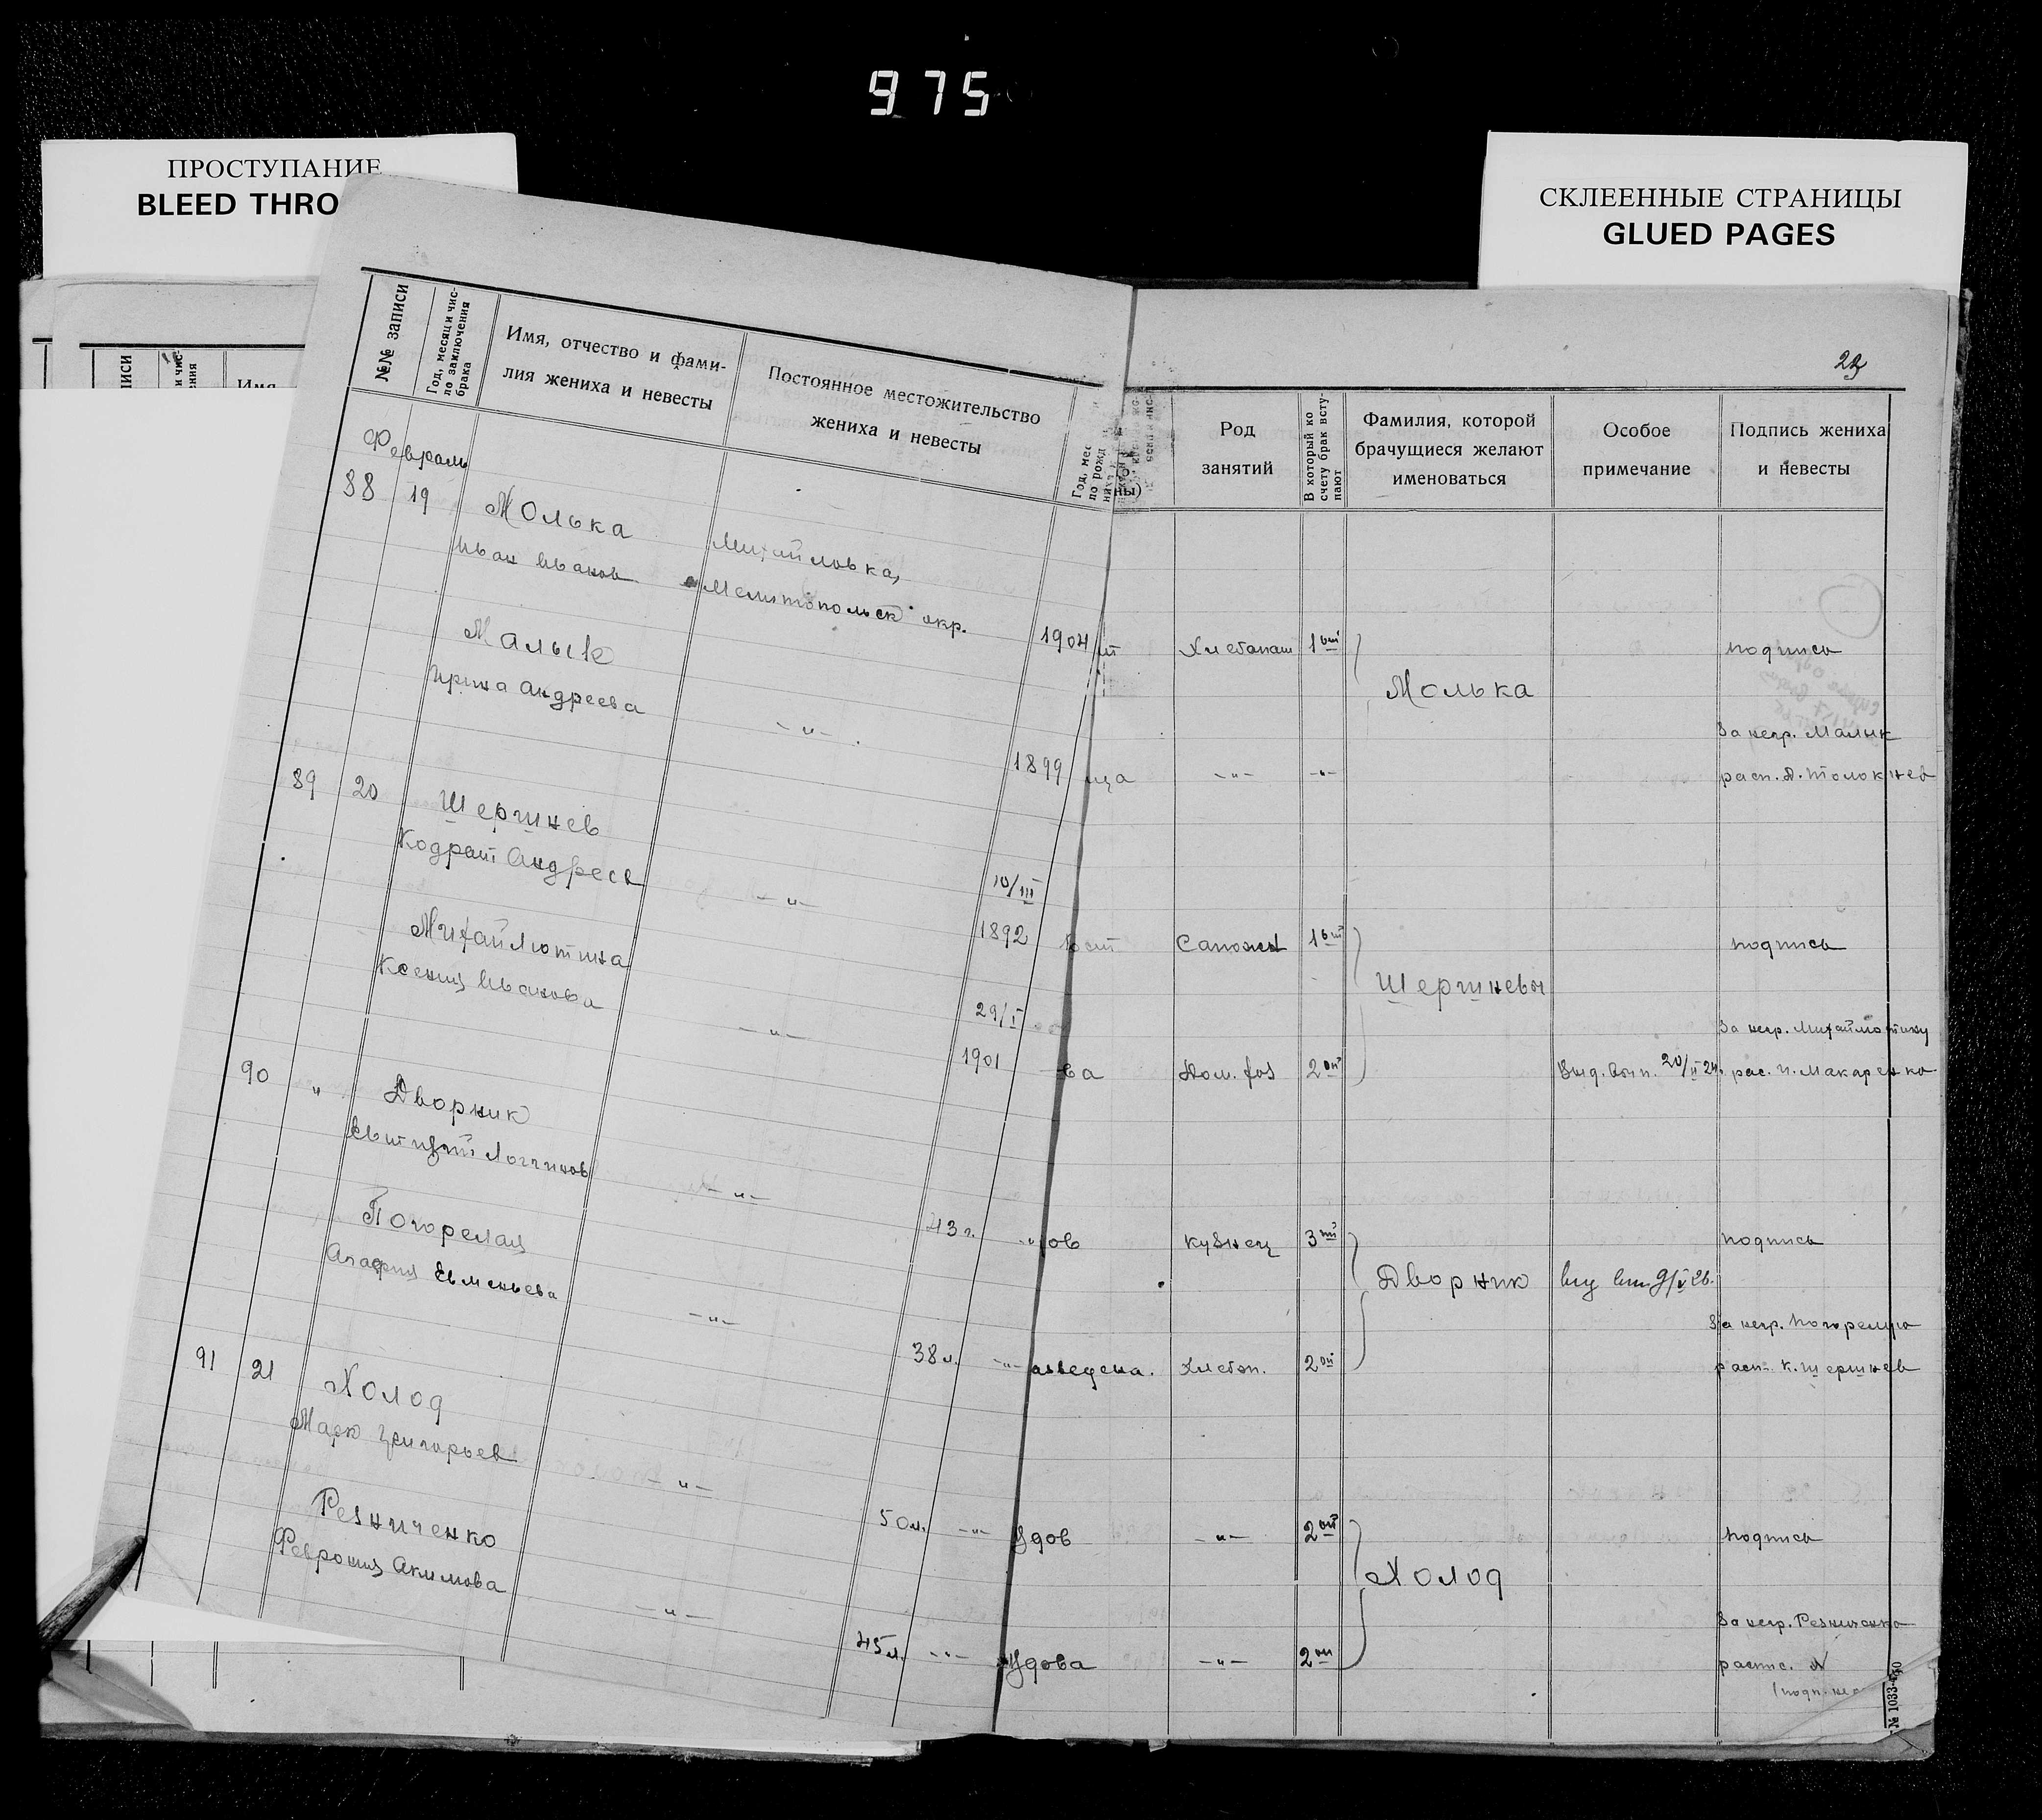 975
ПРОСТУПАНИЕ
BLEED THRO
СКЛЕЕННЫЕ СТРАНИЦЫ
GLUED PAGES
№№ записи
Год, месяц и чис-
ло заключения
брака
Имя, отчество и фами-
лия жениха и невесты
Постоянное местожительство
жениха и невесты
Род
занятий
В который по
счету брак всту-
пают
Фамилия, которой
брачущиеся желают
именоваться
Особое
примечание
Подпись жениха
и невесты
Февраль
88 19 Молька
Иван Иванов
Михайловка,
Мелитопольск окр.
1904 Хлебопаш 1 ый Молька подпись
Малык
Ирина Андреева
-"- 1899 -"- -"-
За негр. Малык
расп.
89 20 Шершнев
Кодрат Андреев
-"- 10/III
1892 Сапожн 1 ый Шершневы подпись
Михайлютина
Ксения Иванова
-"- 29/I
1901 ва Дом. хоз 2 ой
20/II 24.
За негр. Михайлютину
рас. И. Макаренко
90 " Дворник
Логгинов
-"- 43 г. -"- ов кузнец 3 ий Дворник подпись
Погорелая
Агафия Евменьева
-"- 38 л. -"- азведена. Хлебоп. 2 ой
За негр. Погорелую
расп. К. Шершнев
91 21 Холод
Марк Григорьев
-"- 50 л. -"- Удов -"- 2 ой Холод подпись
Резниченко
Феврония Акимова
-"- 45 л. -"- Удова -"- 2 ой
За негр. Резниченко
№ 1033-